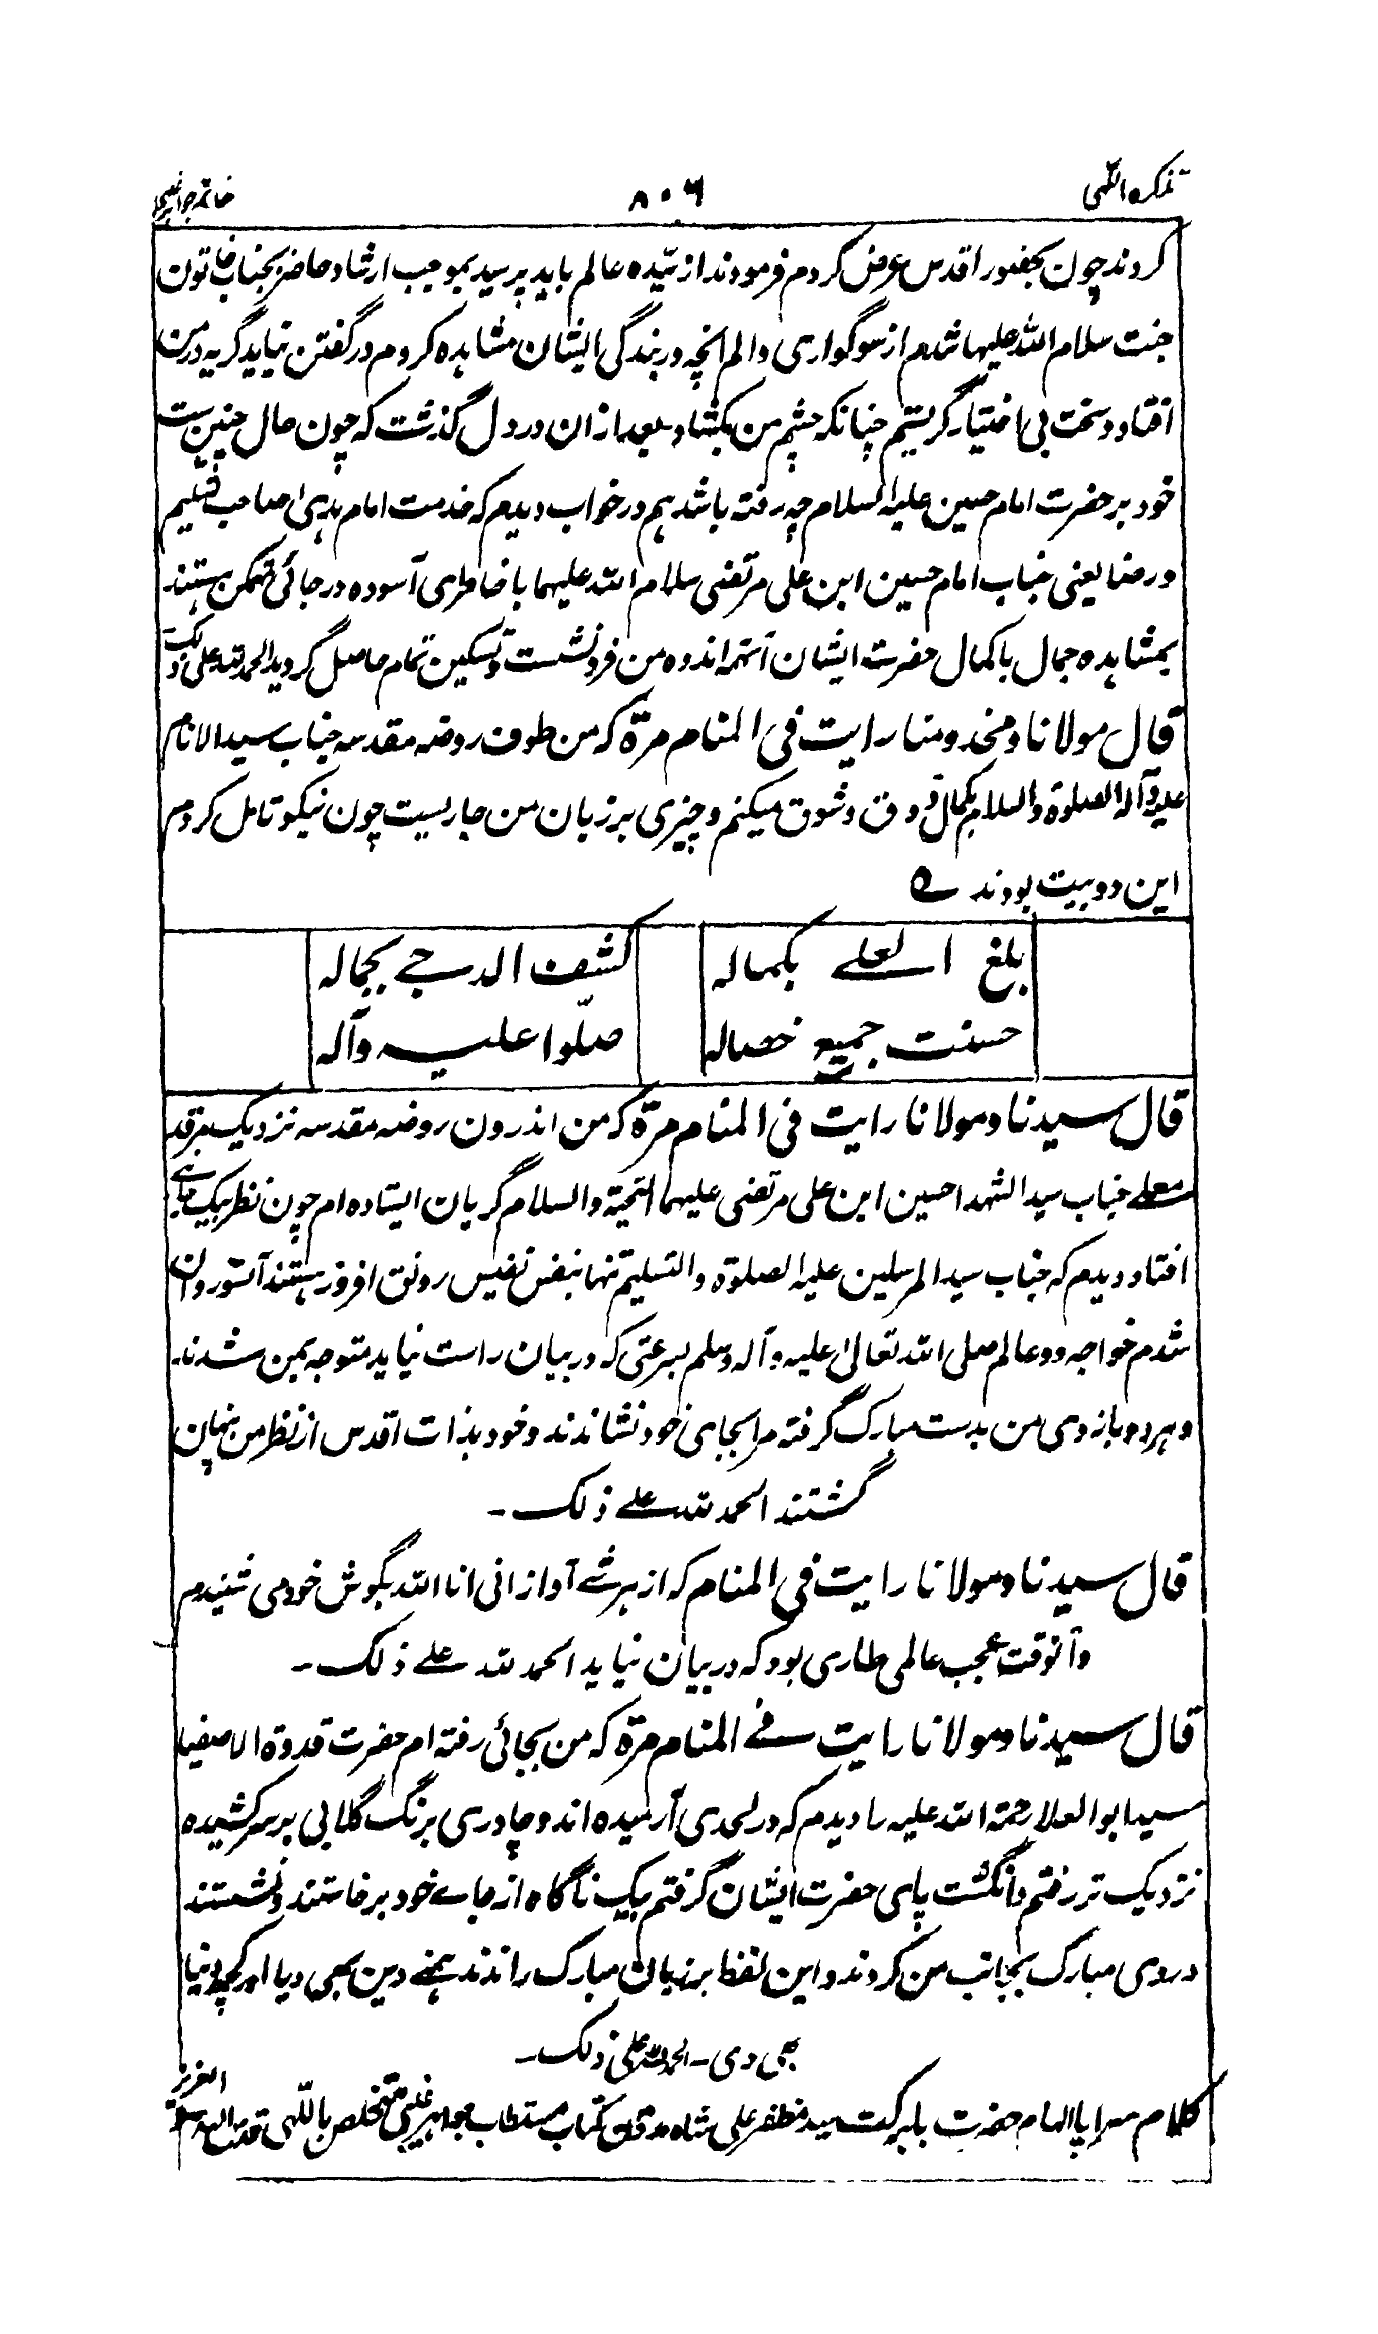 تذکره اللّهی
۸۰۶
خاتمه جواهر غیبی
کردند چون بحضور اقدس عرض کردم فرمودند از سیّده عالم باید پرسید بموجب ارشاد حاضر بجناب خاتون
جنت سلام الله علیها شدم از سوگواری والم انچه در بندگی ایشان مشاهده کردم در گفتن نیاید گریه در من
افتاد و سخت بی اختیار گریستم چنانکه چشم من بکشاد بعد ازان در دل گذشت که چون حال چنین ست
خود بر حضرت امام حسین علیه السلام چه رفته باشد هم در خواب دیدم که خدمت امام هدی صاحب تسلیم
و رضا یعنی جناب امام حسین ابن علی مرتضی سلام الله علیهما با خاطری آسوده در جائی متمکن هستند
بمشاهده جمال باکمال حضرت ایشان آنهمه اندوه من فرو نشست و تسکین تمام حاصل گردید الحمد لله علی ذلک
قال مولانا و مخدومنا رایت فی المنام مرّة که من طوف روضه مقدسه جناب سید الانام
علیه وآله الصلوة والسلام بکمال ذوق و شوق میکنم و چیزی بر زبان من جاریست چون نیکو تامل کردم
این دو بیت بودند ؎
بلغ العلے بکماله
کشف الدجے بجماله
حسنت جمیع خصاله
صلّوا علیه وآله
قال سیدنا و مولانا رایت فی المنام مرّة که من اندرون روضه مقدسه نزدیک مرقد
معلے جناب سید الشهدا حسین ابن علی مرتضی علیهما التحیة والسلام گریان ایستاده ام چون نظر بیک جای
افتاد دیدم که جناب سید المرسلین علیه الصلوة والتسلیم تنها بنفس نفیس رونق افروز هستند آنسو روان
شدم خواجه دو عالم صلی الله تعالی علیه وآله وسلم بسرعتی که در بیان راست نیاید متوجه بمن شدند
و هر دو بازوی من بدست مبارک گرفته مرا بجای خود نشاندند و خود بذات اقدس از نظر من پنهان
گشتند الحمد لله علے ذلک۔
قال سیدنا و مولانا رایت فی المنام که از هر شے آواز انی انا الله بگوش خود می شنیدم
و آنوقت عجب عالمی طاری بود که در بیان نیاید الحمد لله علے ذلک۔
قال سیدنا و مولانا رایت فے المنام مرّة که من بجائی رفته ام حضرت قدوة الاصفیا
سید ابو العلا رحمة الله علیه را دیدم که در لحدی آرمیده اند و چادری برنگ گلابی بر سر کشیده
نزدیک تر رفتم و انگشت پای حضرت ایشان گرفتم بیک ناگاه از جاے خود برخاستند و نشستند
و روی مبارک بجانب من کردند و این لفظ بر زبان مبارک راندند ہمنے دین بھی دیا اور کچھ دنیا
بھی دی۔ الحمد لله علی ذلک۔
کلام سراپا الهام حضرت بابرکت سید مظفر علی شاه کتاب مستطاب جواهر غیبی متخلص باللّهی قدس الله سره العزیز